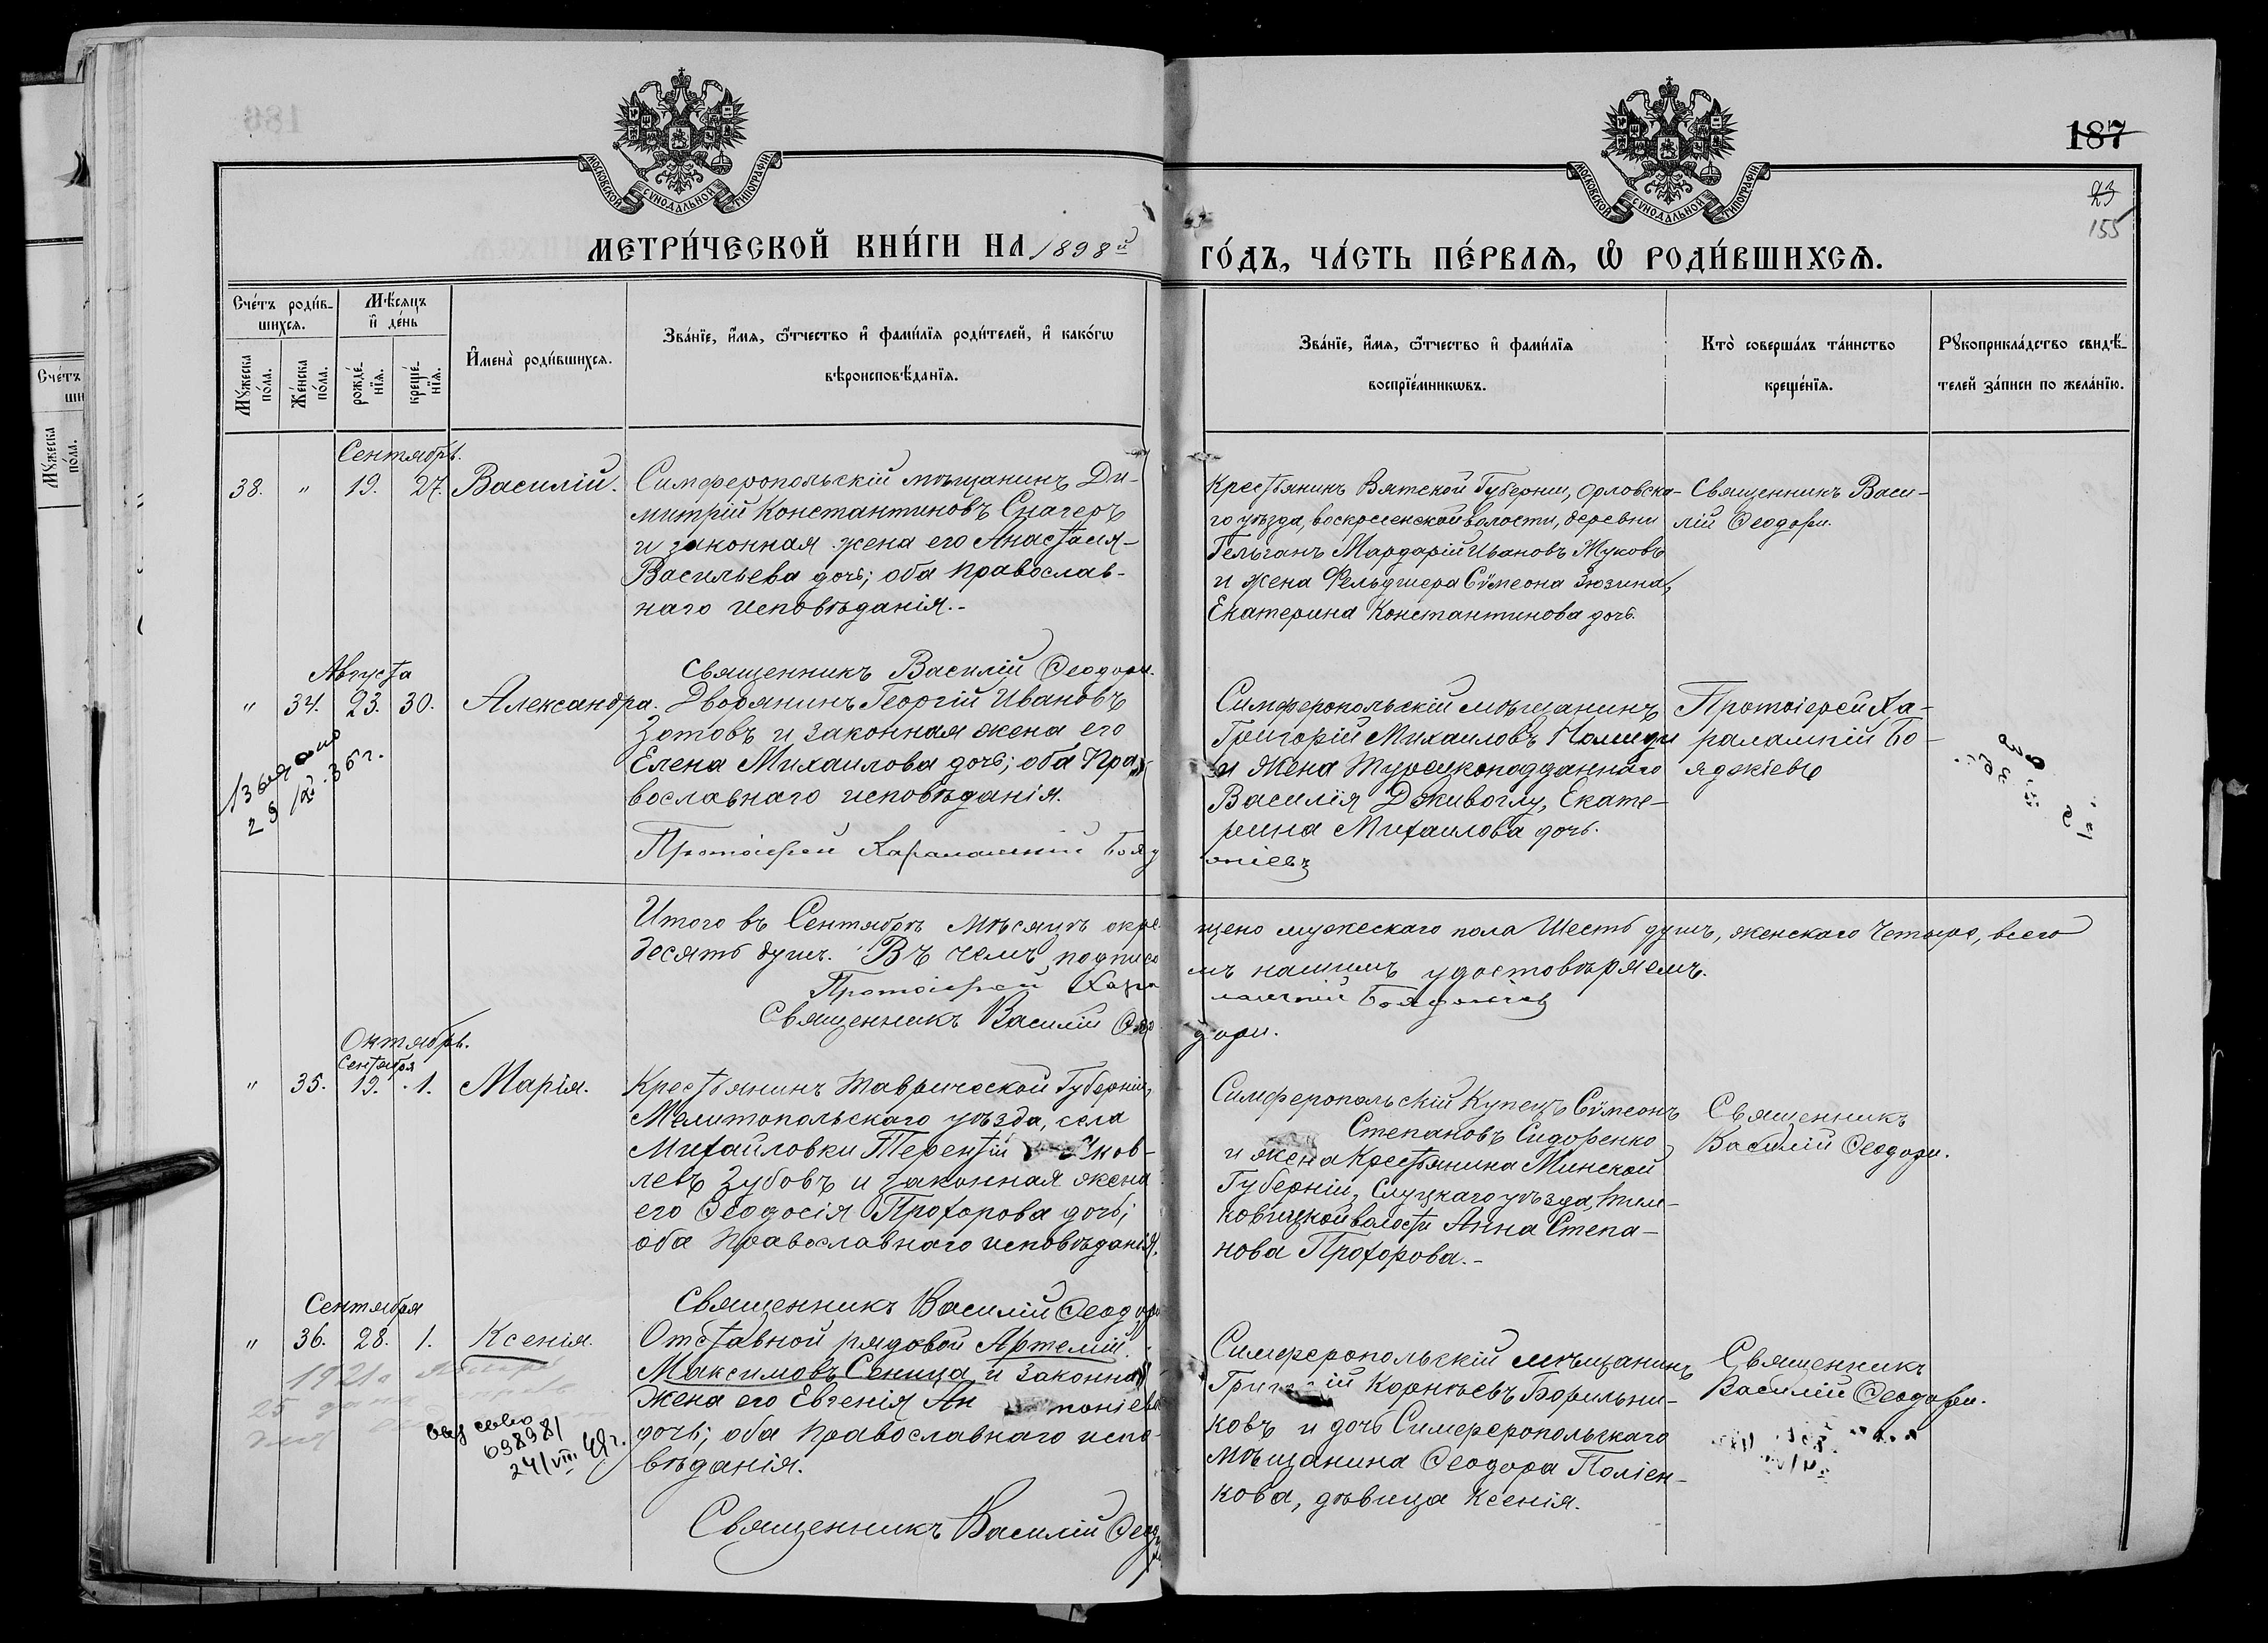 187
23
155
МОСКОВСКОЙ СѴНОДАЛЬНОЙ ТИПОГРАФІИ
МОСКОВСКОЙ СѴНОДАЛЬНОЙ ТИПОГРАФІИ
МЕТРИ́ЧЕСКОЙ КНИ́ГИ НА 1898й
ГО́ДЪ, ЧА́СТЬ ПЕ́РВАѦ, Ѽ РОДИ́ВШИХСѦ.
Сче́тъ роди́в-
шихсѧ.
Мꙋ́жеска
по́ла.
Же́нска
по́ла.
Мѣ́сяцъ
и҆ де́нь
рожде́-
нїѧ.
креще́-
нїѧ.
И҆мена̀ роди́вшихсѧ.
Зва́нїе, и҆́мѧ, ѻ҆́тчество и҆ фами́лїѧ роди́телей, и҆ како́гѡ
вѣроисповѣ́данїѧ.
Зва́нїе, и҆́мѧ, ѻ҆́тчество и҆ фами́лїѧ
воспрїе́мникѡвъ.
Кто̀ соверша́лъ та́инство
креще́нїѧ.
Рꙋкоприкла́дство свидѣ́-
телей за́писи по жела́нїю.
Сентябрь.
38. " 19. 27. Василій.
Симферопольскій мѣщанинъ Ди-
митрій Константиновъ Снагеръ
и законная жена его Анастасія
Васильева дочь; оба православ-
наго исповѣданія.-
Священникъ Василій Ѳеодори.
Крестьянинъ Вятской Губерніи, Орловска-
го уѣзда, воскресенской волости, деревни
Гельганъ Мардарій Ивановъ Жуковъ
и жена Фельдшера Сѵмеона Зюзина,
Екатерина Константинова дочь.
Священникъ Васи-
лій Ѳеодори.
Августа
" 34. 23. 30. Александра.
Дворянинъ Георгій Ивановъ
Зотовъ и законная жена его
Елена Михаилова дочь; оба Пра-
вославнаго исповѣданія.
Протоіерей Харалампій Бояд
жіевъ
Симферопольскій мѣщанинъ
Григорій Михаиловъ
и жена Турецкоподданнаго
Василія Дживоглу, Екате-
рина Михаилова дочь.
Протоіерей Ха-
ралампій Бо-
яджіевъ
36 г.
Итого въ Сентябрѣ мѣсяцѣ окре
щено мужескаго пола Шесть душъ, женскаго Четыре, всего
десять душъ. Въ чемъ подписо
мъ нашимъ удостовѣряемъ.
Протоіерей Хара
лампій Бояджіевъ
Священникъ Василій Ѳео
дори.
Октябрь.
Сентября
" 35. 19. 1. Марія.
Крестьянинъ Таврической Губерніи,
Мелитопольскаго уѣзда, села
Михайловки Терентій Яков-
левъ Зубовъ и законная жена
его Ѳеодосія Прохорова дочь;
оба православнаго исповѣданія.
Священникъ Василій Ѳеодори
Симферопольскій Купецъ Сѵмеонъ
Степановъ Сидоренко
и жена Крестьянина Минской
Губерніи, Слуцкаго уѣзда, Тим-
ковицкой волости Анна Степа-
нова Прохорова.-
Священникъ
Василій Ѳеодори.
Сентября
" 36. 28. 1. Ксенія.
Отставной рядовой Артемій
Максимовъ Сеница и законная
жена его Евгенія Ан тоніева
дочь; оба православнаго испо-
вѣданія.
Священникъ Василій Ѳеод
Симферопольскій мѣщанинъ
Григорій Корнѣевъ Борильни-
ковъ и дочь Симферопольскаго
мѣщанина Ѳеодора Поліен-
кова, дѣвица Ксенія.
Священникъ
Василій Ѳеодори.
1921
25
698981
24/VIII 49г.